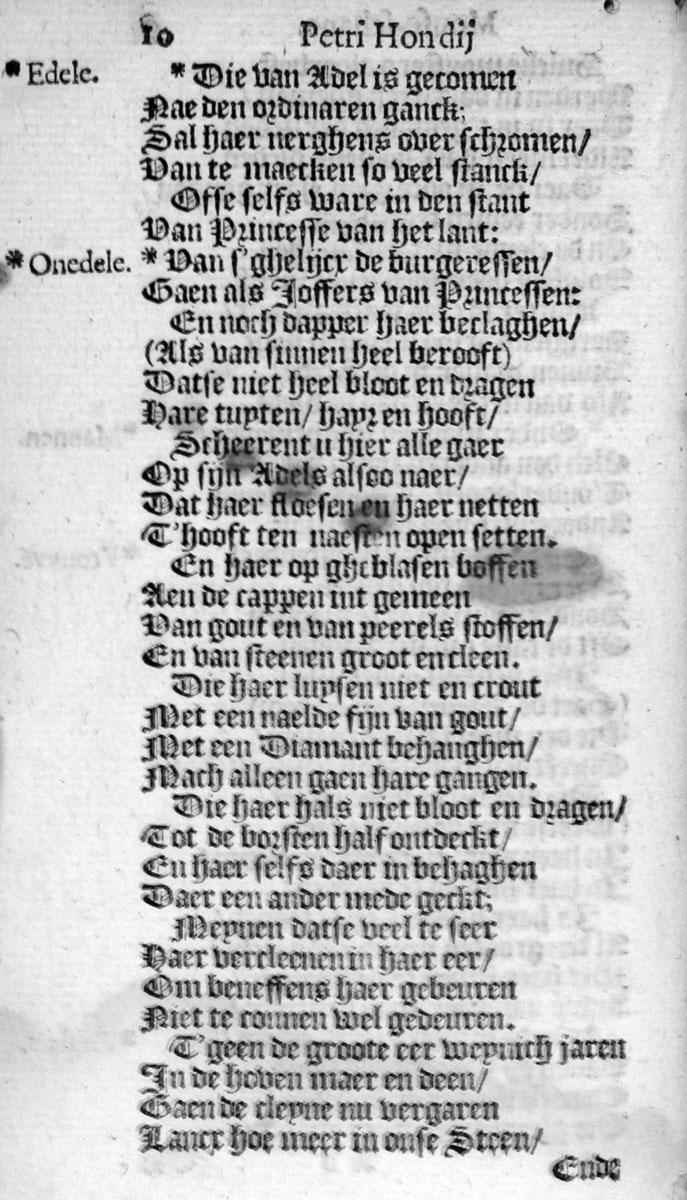 10 Petri Hondij
* Edele. * Die van Adel is gecomen
Nae den ordinaren ganck;
Sal haer nerghens over schromen/
Van te maecken so veel stanck/
Ofse selfs ware in den stant
Van Princesse van het lant:
* Onedele. * Van s'ghelijcx de burgeressen/
Gaen als Joffers van Princessen:
En noch dapper haer beclaghen/
(Als van sinnen heel berooft)
Datse niet heel bloot en dragen
Hare tuyten/ hayr en hooft/
Scheerent u hier alle gaer
Op sijn Adels alsoo naer/
Dat haer floesen en haer netten
T'hooft ten naesten open setten.
En haer op gheblasen boffen
Aen de cappen int gemeen
Van gout en van peerels stoffen/
En van steenen groot en cleen.
Die haer luysen niet en crout
Met een naelde fijn van gout/
Met een Diamant behanghen/
Mach alleen gaen hare gangen.
Die haer hals niet bloot en dragen/
Tot de borsten half ontdeckt/
En haer selfs daer in behaghen
Daer een ander mede geckt;
Meynen datse veel te seer
Haer vercleenen in haer eer/
Om beneffens haer gebeuren
Niet te connen wel gedeuren.
T'geen de groote eer weynich jaren
In de hoven maer en deen/
Gaen de cleyne nu vergaren
Lancx hoe meer in onse Steen/
Ende